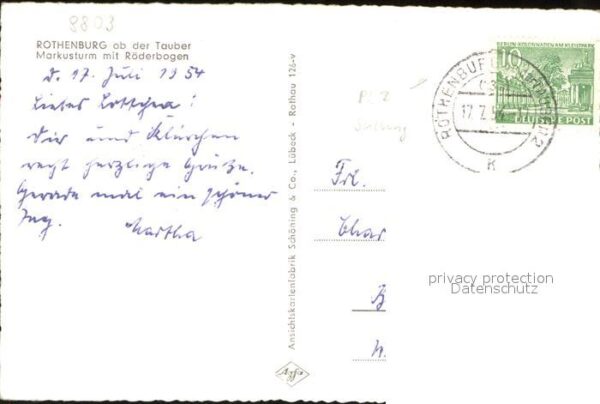 8803
ROTHENBURG ob der Tauber
Markusturm mit Röderbogen
d. 17. Juli 1954
Liebes Lottchen!
Dir und Klärchen
recht herzliche Grüße.
Gerade mal ein schöner
Tag. Martha
Ansichtskartenfabrik Schöning & Co., Lübeck - Rothau 126-v
Agfa
BERLIN KOLONNADEN AM KLEISTPARK
10
DEUTSCHE POST
ROTHENBURG
17.7.54
K
Frl.
Char
B
privacy protection
Datenschutz